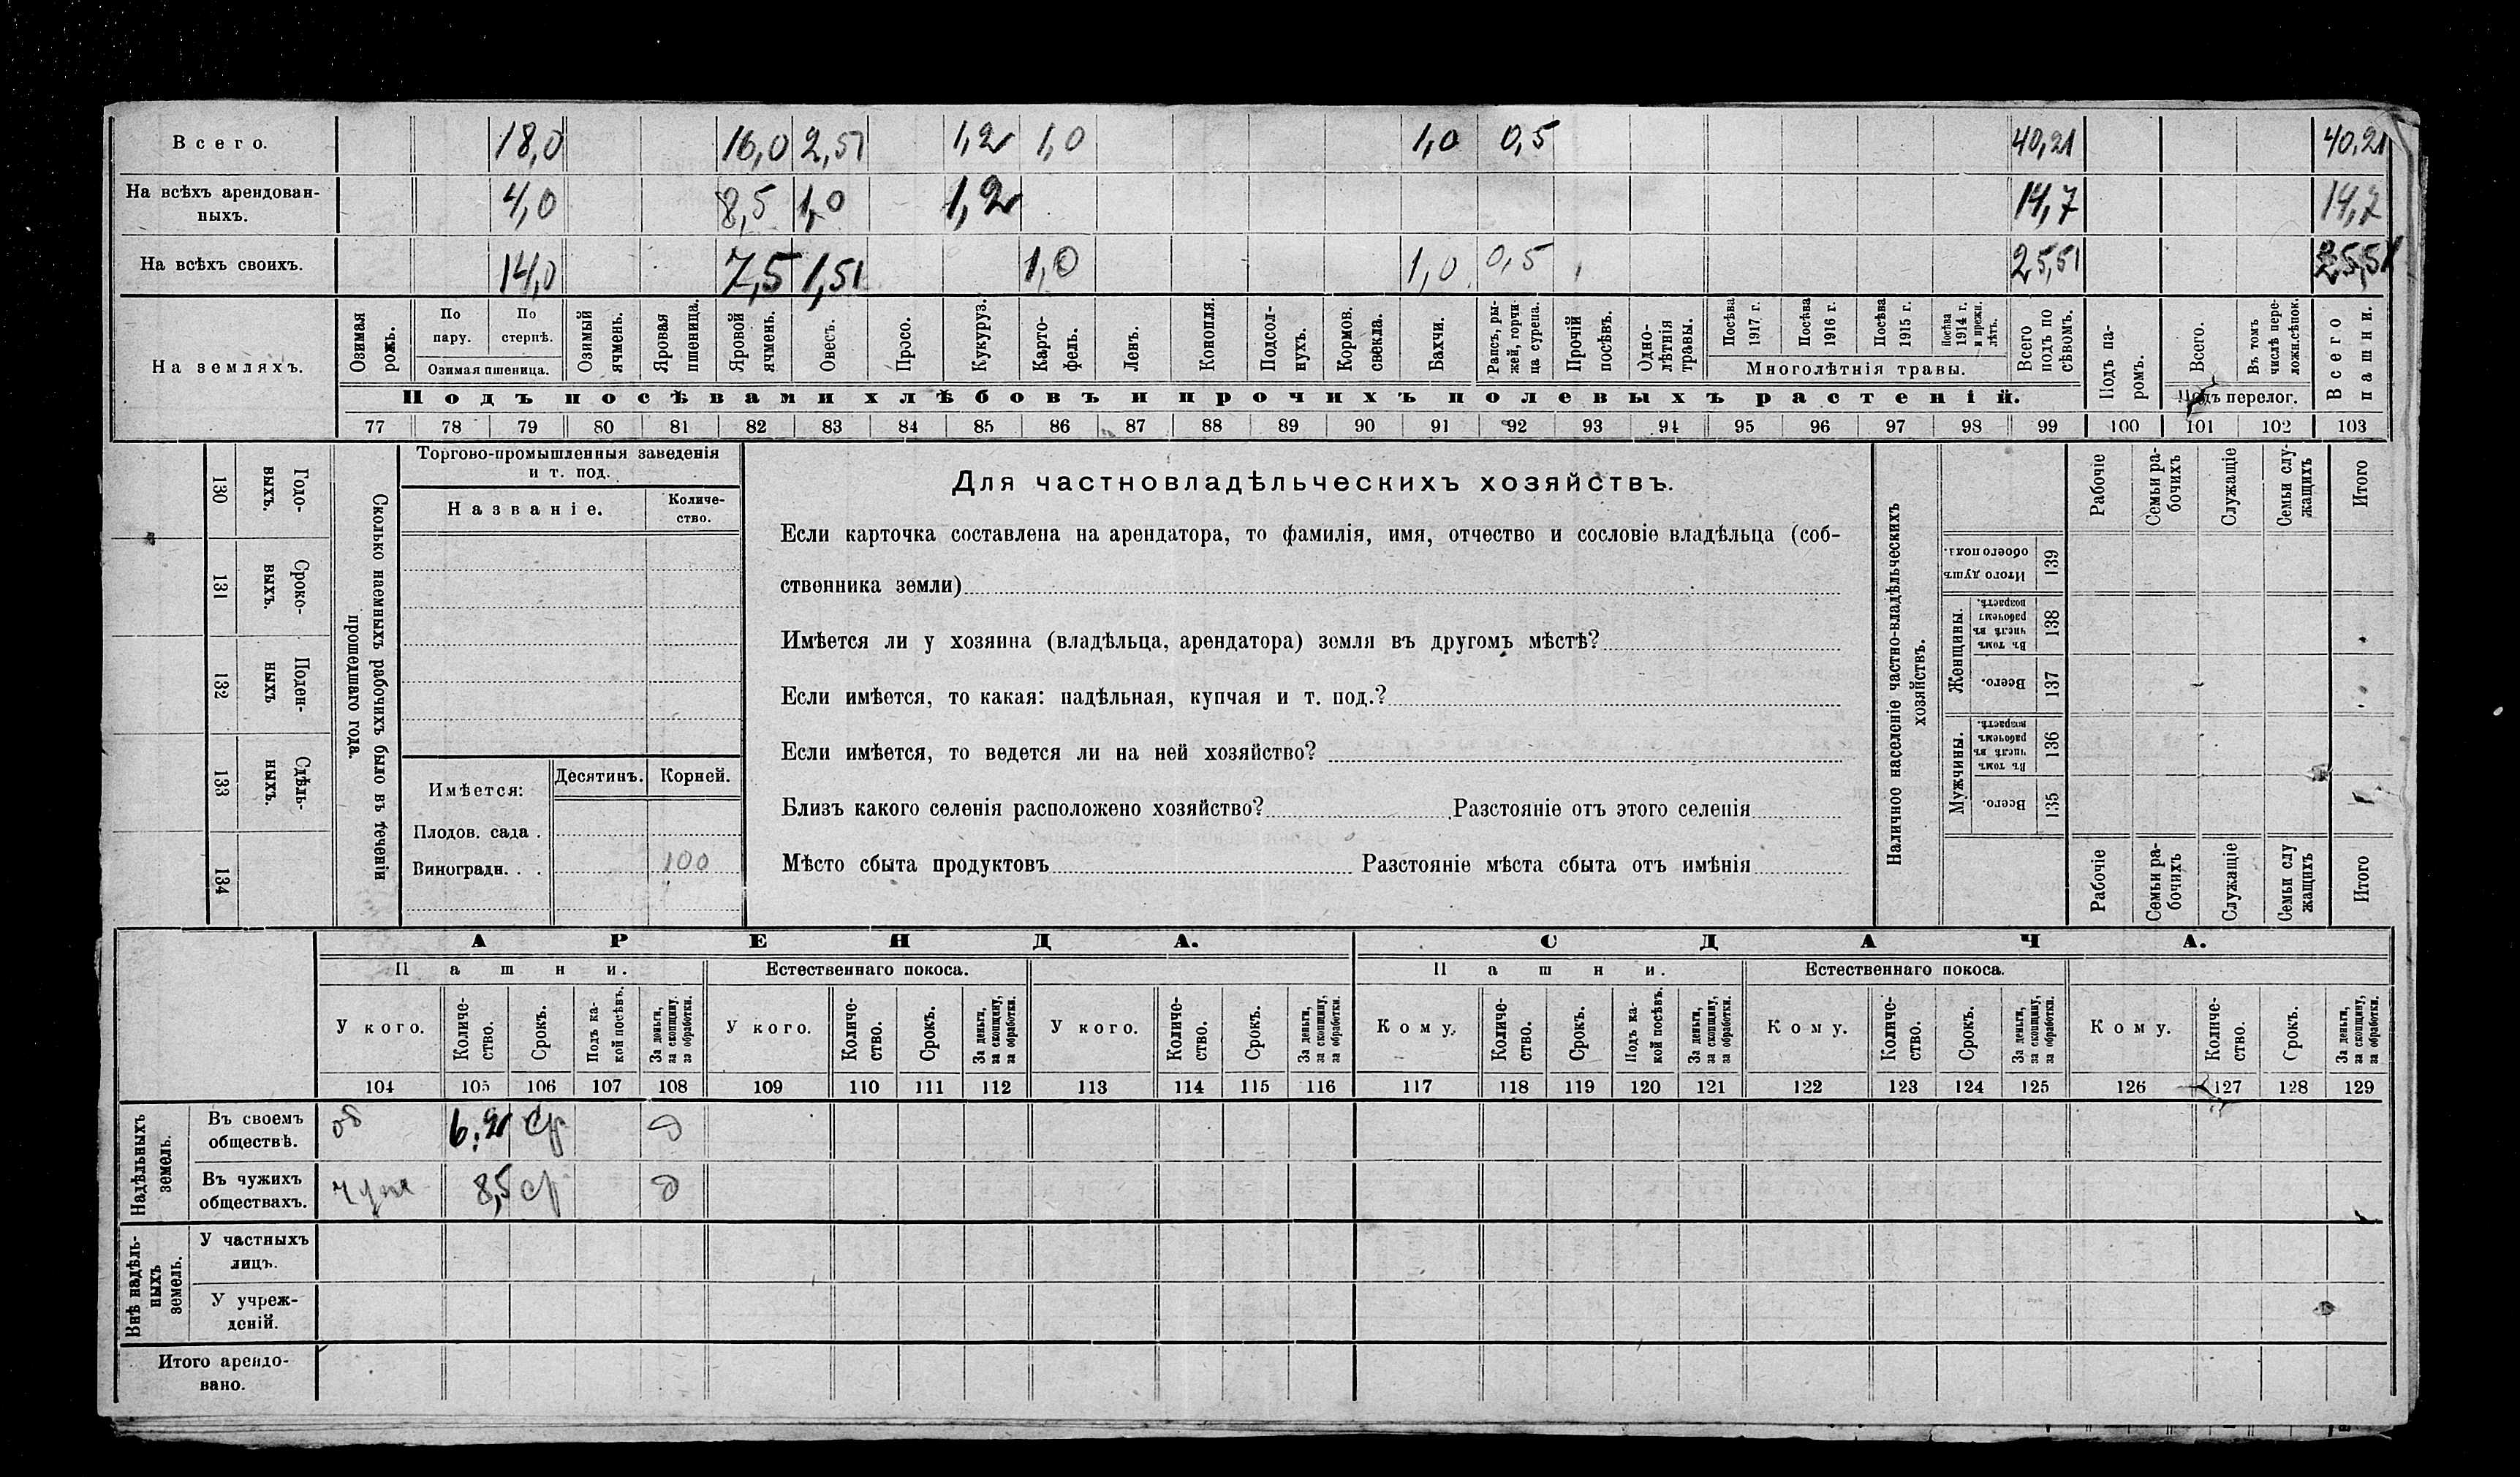 Всего. 18,0 16,0 2,51 1,2 1,0 1,0 0,5 40,21 40,21
На всѣхъ арендован-
ныхъ. 4,0 8,5 1,0 1,2 14,7 14,7
На всѣхъ своихъ. 14,0 7,5 1,51 1,0 1,0 0,5 25,51 25,51
На земляхъ.
Озимая рожь.
По пару.
По стернѣ.
Озимая пшеница.
Озимый ячмень.
Яровая пшеница.
Яровой ячмень.
Овесъ.
Просо.
Кукуруз.
Карто-
фель.
Ленъ.
Конопля.
Подсол-
нухъ.
Кормов. свекла.
Бахчи.
Рапсъ, ры-
жей, горчи-
ца сурепа.
Прочій посѣвъ.
Одно-
лѣтнія травы.
Посѣва 1917 г.
Посѣва 1916 г.
Посѣва 1915 г.
Посѣва 1914 г. и прежн. лѣтъ.
Многолѣтнія травы.
Всего подъ по сѣвомъ.
Подъ па-
ромъ.
Всего.
Въ томъ числѣ пере-
ложн. сѣнок.
Подъ перелог.
Всего пашни.
Подъ посѣвами хлѣбовъ и прочихъ полевыхъ растеній.
77 78 79 80 81 82 83 84 85 86 87 88 89 90 91 92 93 94 95 96 97 98 99 100 101 102 103
130 Годо-
выхъ.
131 Сроко-
выхъ.
132 Поден-
ныхъ
133 Сдѣль-
ныхъ.
134
Сколько наемныхъ рабочихъ было въ теченіи
прошедшаго года.
Торгово-промышленныя заведенія
и т. под.
Названіе.
Количе-
ство.
Имѣется:
Десятинъ. Корней.
Плодов. сада .
Виноградн. . . 100
Для частновладѣльческихъ хозяйствъ.
Если карточка составлена на арендатора, то фамилія, имя, отчество и сословіе владѣльца (соб-
ственника земли)
Имѣется ли у хозяина (владѣльца, арендатора) земля въ другомъ мѣстѣ?
Если имѣется, то какая: надѣльная, купчая и т. под.?
Если имѣется, то ведется ли на ней хозяйство?
Близъ какого селенія расположено хозяйство? Разстояніе отъ этого селенія
Мѣсто сбыта продуктовъ Разстояніе мѣста сбыта отъ имѣнія
Наличное населеніе частно-владѣльческихъ
хозяйствъ.
Рабочіе
Семьи ра-
бочихъ
Служащіе
Семьи слу-
жащихъ
Итого
Итого душъ обоего пола.
139
Женщины.
Въ томъ числѣ въ рабочемъ возрастѣ.
138
Всего.
137
Мужчины.
Въ томъ числѣ въ рабочемъ возрастѣ.
136
Всего.
135
Рабочіе
Семьи ра-
бочихъ
Служащіе
Семьи слу
жащихъ
Итого
АРЕНДА. СДАЧА.
Пашни. Естественнаго покоса. Пашни. Естественнаго покоса.
У кого.
Количе-
ство.
Срокъ.
Подъ ка-
кой посѣвъ.
За деньги, за скопщину. за обработки.
У кого.
Количе-
ство.
Срокъ.
За деньги, за скопщину, за обработки.
У кого.
Количе-
ство.
Срокъ.
За деньги, за скопщину, за обработки.
Кому.
Количе-
ство.
Срокъ.
Подъ ка-
кой посѣвъ.
За деньги, за скопщину, за обработки.
Кому.
Количе-
ство.
Срокъ.
За деньги, за скопщину, за обработки.
Кому.
Количе-
ство.
Срокъ.
За деньги, за скопщину, за обработки.
104 105 106 107 108 109 110 111 112 113 114 115 116 117 118 119 120 121 122 123 124 125 126 127 128 129
Надѣльныхъ
земель.
Въ своемъ
обществѣ. об 6,2 ср д
Въ чужихъ
обществахъ. 8,5 ср д
Внѣ надѣль-
ныхъ
земель.
У частныхъ
лицъ.
У учреж-
деній.
Итого арендо-
вано.